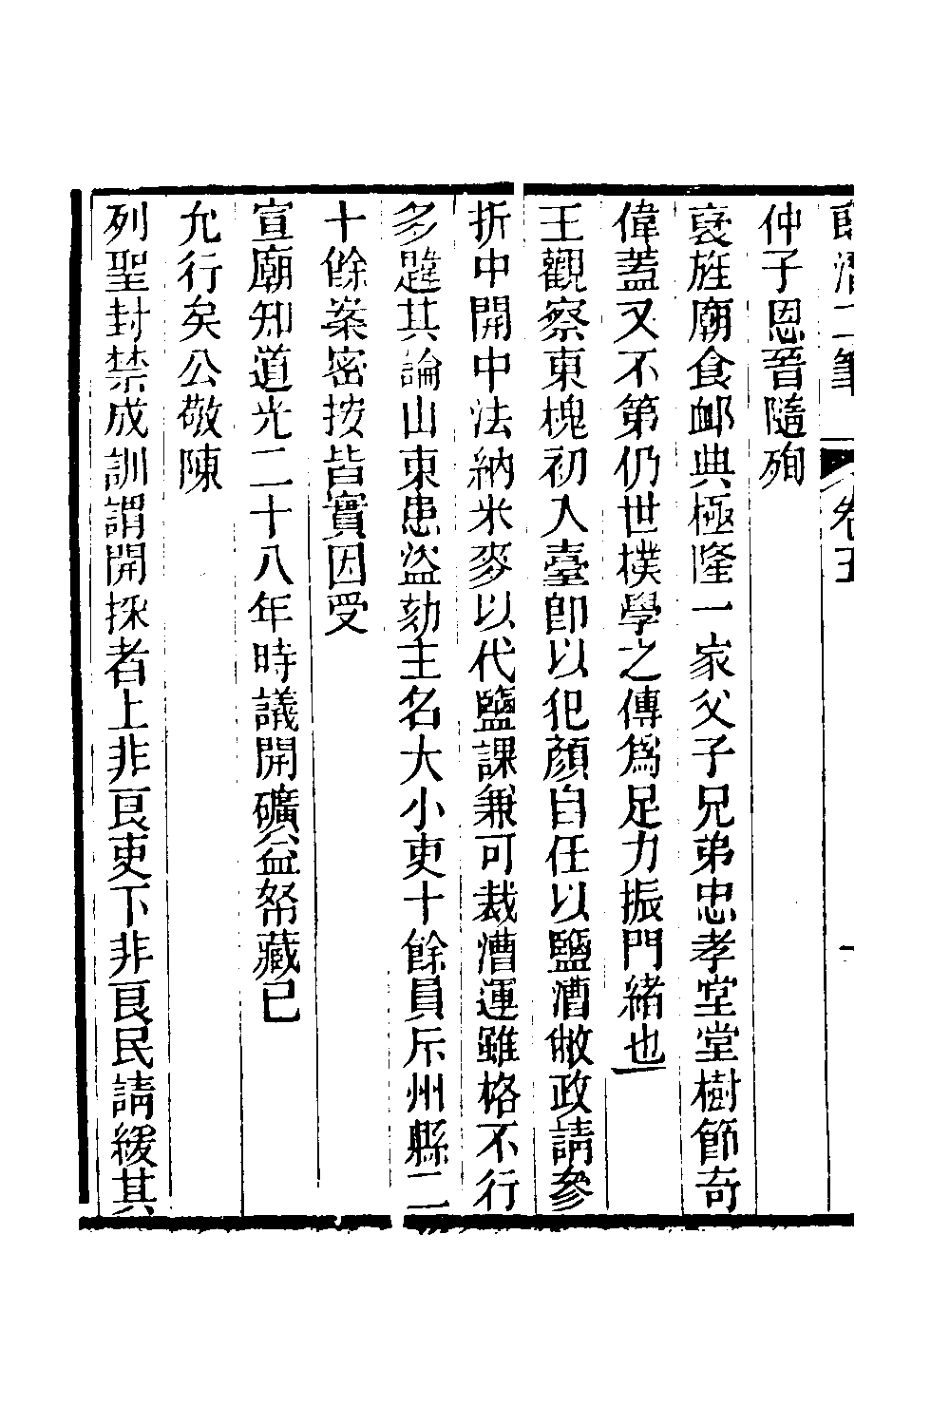 郎潛二筆 卷五 一
仲子恩晉隨殉
褒旌廟食卹典極隆一家父子兄弟忠孝堂堂樹節奇
偉蓋又不第仍世樸學之傳爲足力振門緒也
王觀察東槐初入臺卽以犯顏自任以鹽漕敝政請參
折中開中法納米麥以代鹽課兼可裁漕運雖格不行
多韙其論山東患盜劾主名大小吏十餘員斥州縣二
十餘案密按皆實因受
宣廟知道光二十八年時議開礦益帑藏已
允行矣公敬陳
列聖封禁成訓謂開採者上非良吏下非良民請緩其